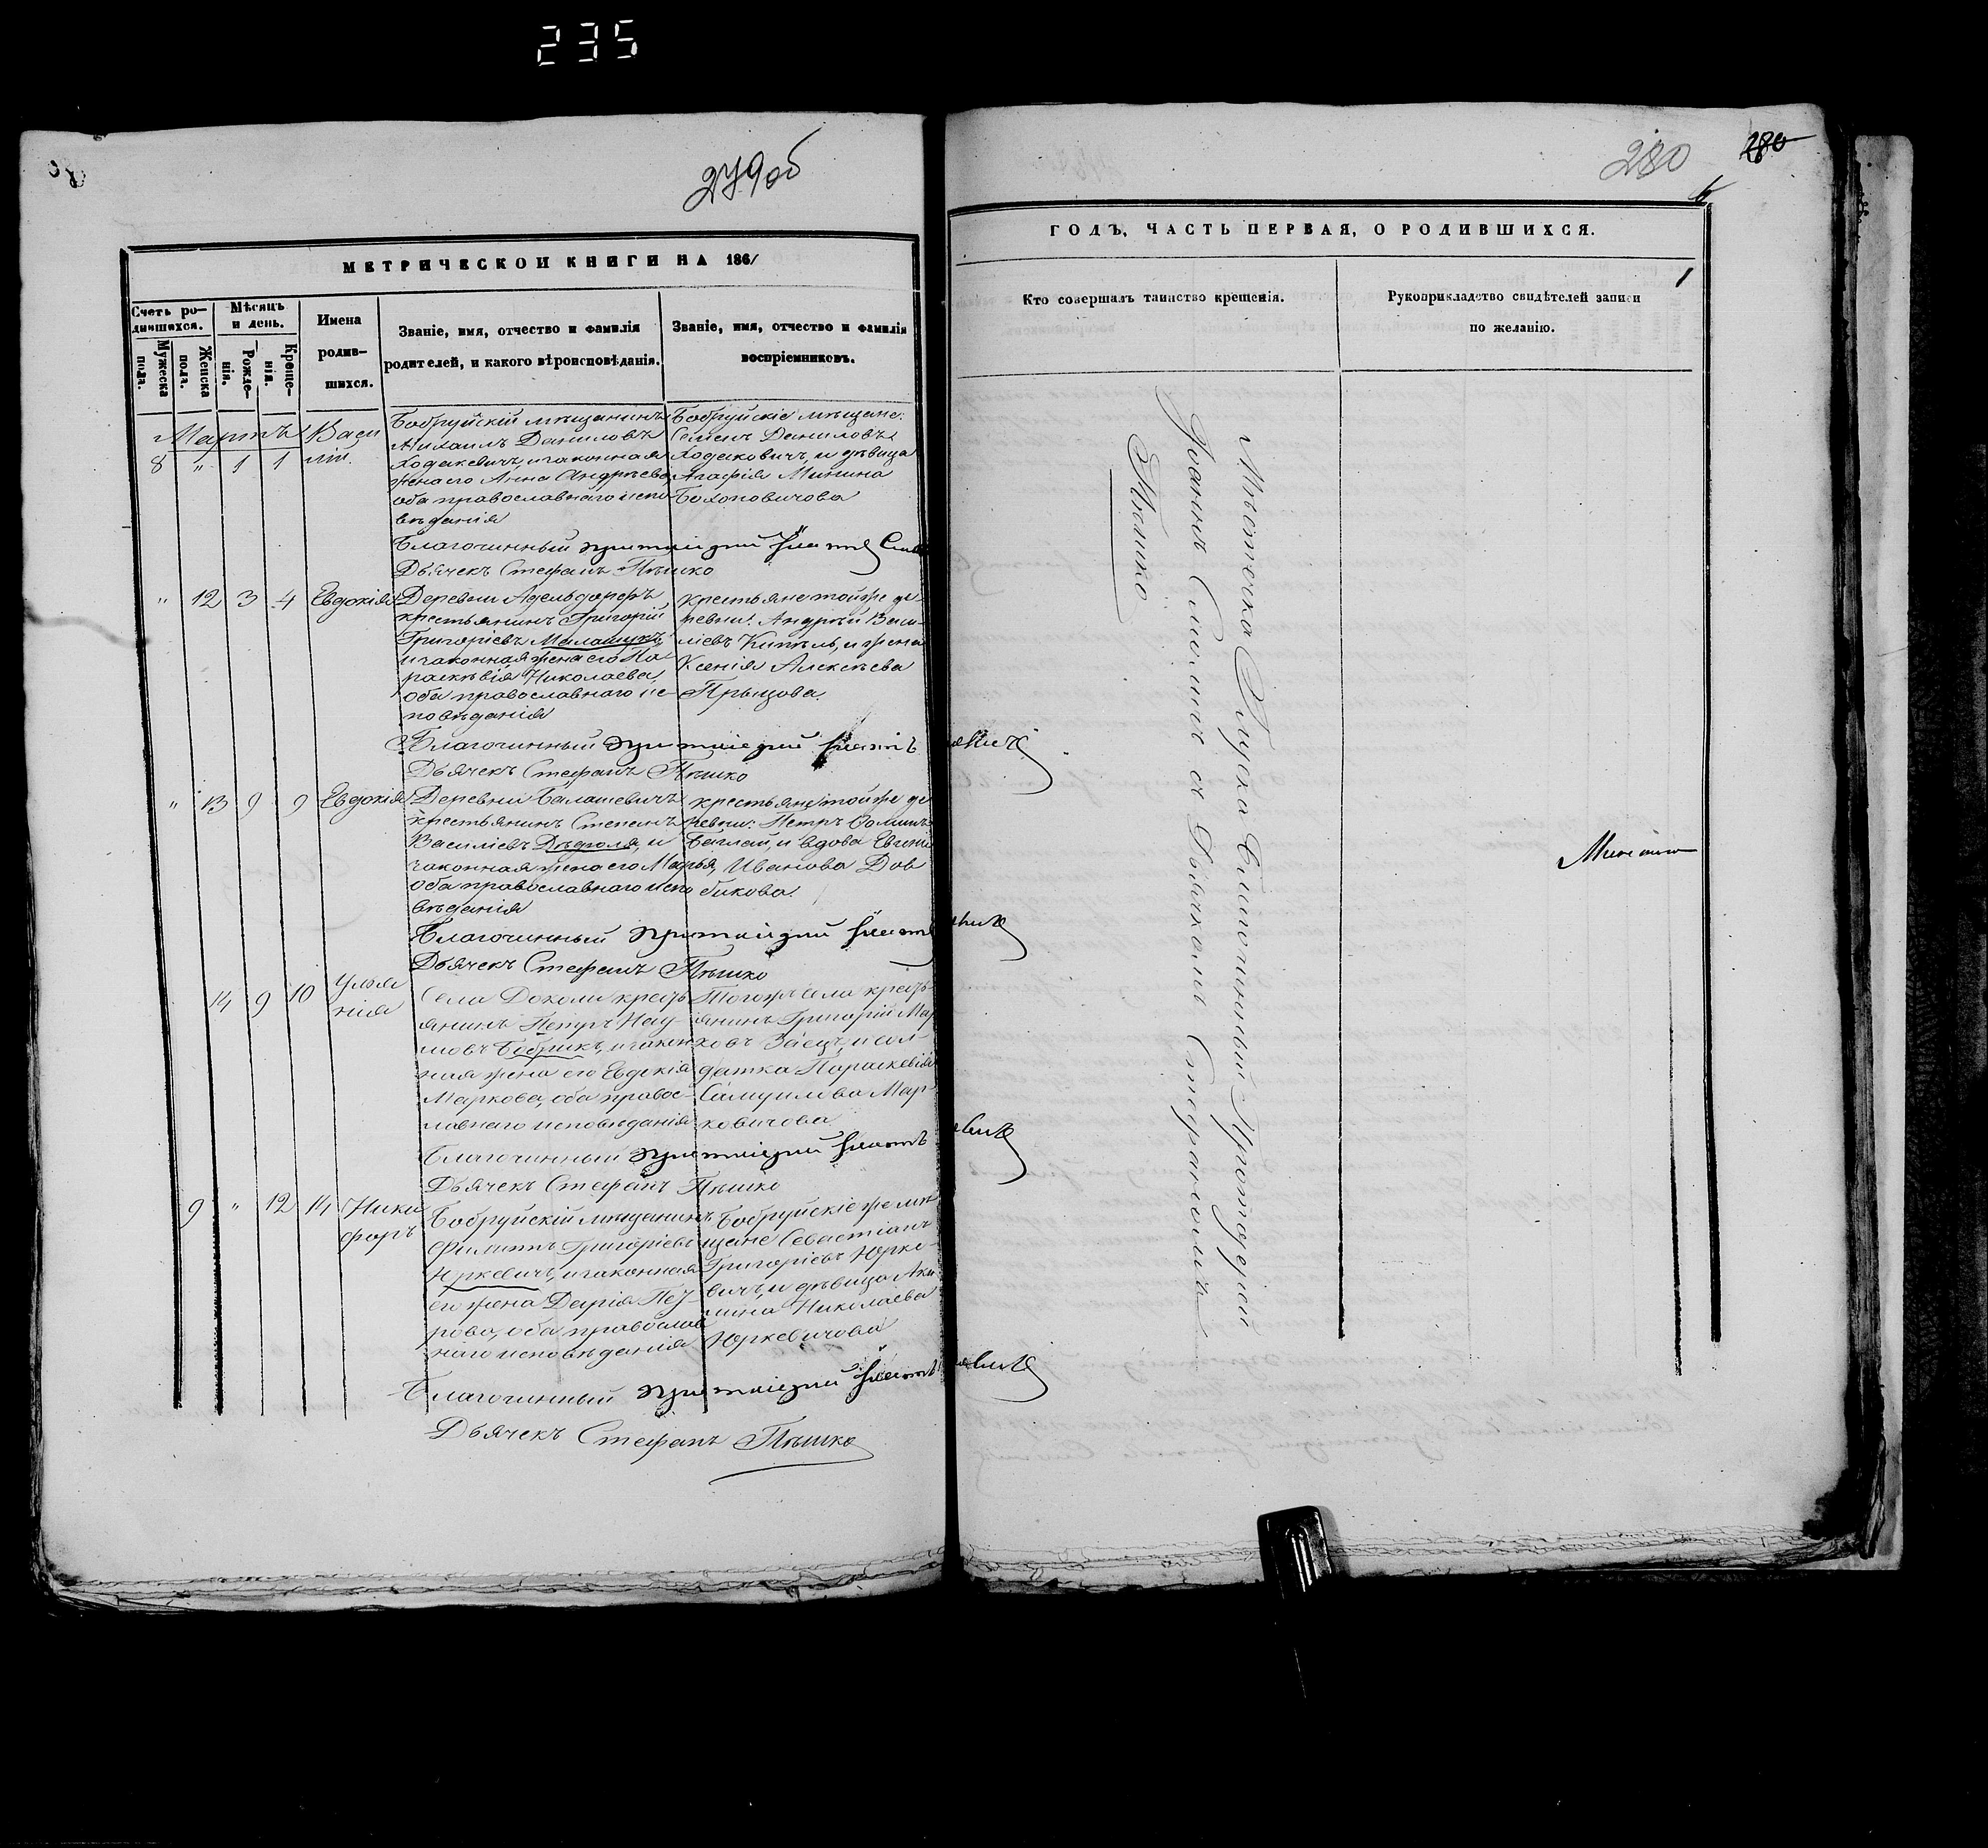 235
279об
МЕТРИЧЕСКОЙ КНИГИ НА 1861
Счетъ ро-
дившихся.
Мѣсяцъ
и день.
Имена
родив-
шихся.
Званіе, имя, отчество и фамилія
родителей, и какого вѣроисповѣданія.
Званіе, имя, отчество и фамилія
воспріемниковъ.
Мужеска
пола.
Женска
пола.
Рожде-
нія.
Креще-
нія.
Мартъ
8 " 1 1
Васи
лій.
Бобруйскій мѣщанинъ
Михаилъ Даниловъ
Ходакевичъ, и законная
жена его Анна Андреева,
оба православнаго испо
вѣданія
Бобруйскіе мѣщане:
Семенъ Даниловъ
Ходаковичъ, и дѣвица
Агафія Минина
Благочинный
Дьячекъ Стефанъ Пѣшко
" 12 3 4
Евдокія
Деревни
крестьянинъ Григорій
Григоріевъ Малашукъ,
и законная жена его Па
раскевія Николаева,
оба православнаго ис
повѣданія
крестьяне тойже де-
ревни: Андрей Васи-
ліевъ Кисель, и жена
Ксенія Алексѣева
Благочинный
Дьячекъ Стефанъ Пѣшко
" 13 9 9
Евдокія
Деревни Балашевичъ
крестьянинъ Степанъ
Василіевъ
и
законная жена его Марья,
оба православнаго испо
вѣданія
крестьяне тойже де
ревни: Петръ
и вдова Евгенія
Иванова Дов
бикова.
Благочинный
Дьячекъ Стефанъ Пѣшко
14 9 10
Улья
нія
Села Доколи кресть
янинъ Петръ Нау-
мовъ Бобрикъ, и закон
ная жена его Евдокія
Маркова, оба правос-
лавнаго исповѣданія
Тогожъ села кресть
янинъ Григорій Мар
ковъ Заецъ, и сол-
датка Параскевія
Самуилова Мар-
ковичова
Благочинный
Дьячекъ Стефанъ Пѣшко
9 " 12 14
Ники
форъ
Бобруйскій мѣщанинъ
Филиппъ Григоріевъ
Юркевичъ, и законная
его жена Дарія Пет
рова, оба православ
наго исповѣданія
Бобруйскіе же мѣ
щане Севастіанъ
Григоріевъ Юрке-
вичъ, и дѣвица Аки
лина Николаева
Юркевичова
Благочинный
Дьячекъ Стефанъ Пѣшко
280
280
ГОДЪ, ЧАСТЬ ПЕРВАЯ, О РОДИВШИХСЯ.
Кто совершалъ таинство крещенія.
Рукоприкладство свидѣтелей записи
по желанію.
1
Мѣстечка Глуска Благочинный Протоіерей
Іоаннъ Смоличъ съ Дьячкомъ Стефаномъ
Пѣшко